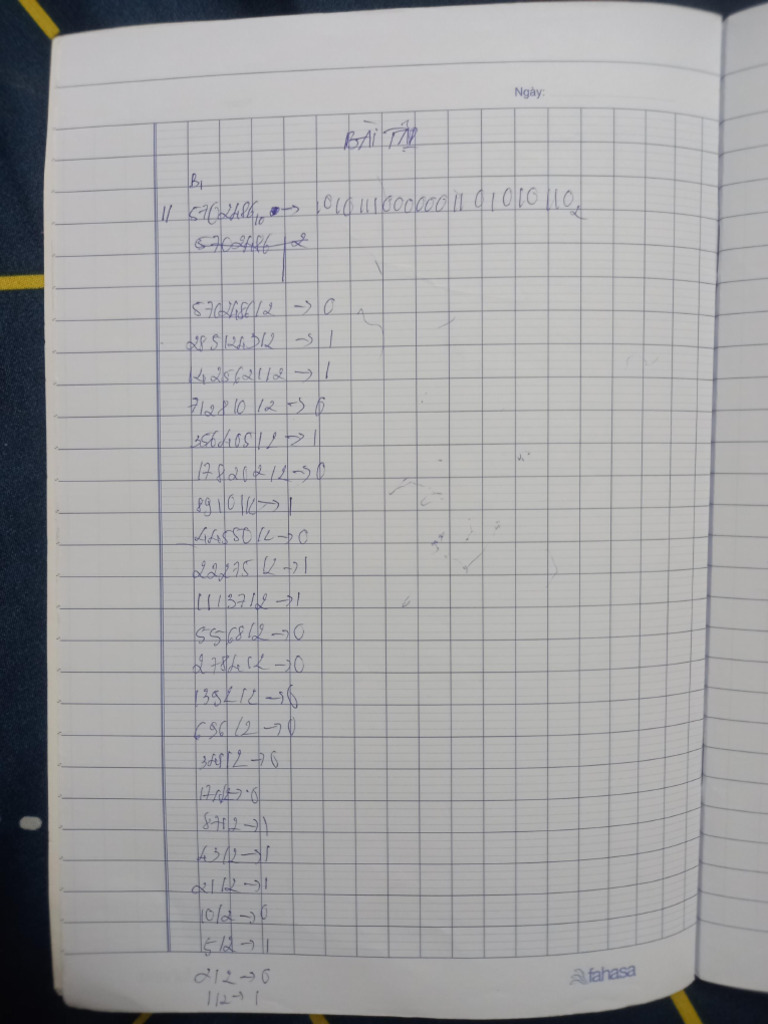 Ngày:
BÀI TẬP
B1
1/ 5702486₁₀ → 10101110000001101010110₂
5702486 | 2
5702486/2 → 0
2851243/2 → 1
1425621/2 → 1
712810/2 → 0
356405/2 → 1
178202/2 → 0
89101/2 → 1
44550/2 → 0
22275/2 → 1
11137/2 → 1
5568/2 → 0
2784/2 → 0
1392/2 → 0
696/2 → 0
348/2 → 0
174/2 → 0
87/2 → 1
43/2 → 1
21/2 → 1
10/2 → 0
5/2 → 1
2/2 → 0
1/2 → 1
fahasa